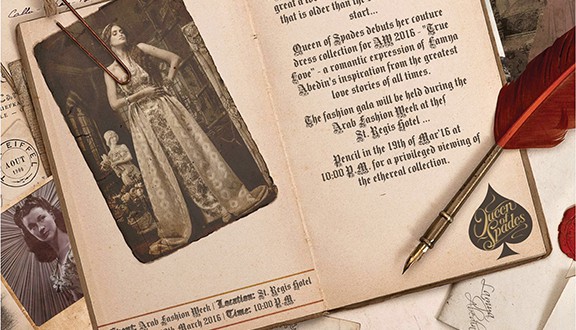 great a lo
that is older than the
start...
Queen of Spades debuts her couture
dress collection for AW 2016 - "True
Love" - a romantic expression of Lamya
Abedin's inspiration from the greatest
love stories of all times.
The fashion gala will be held during the
Arab Fashion Week at thef
St. Regis Hotel ...
Pencil in the 19th of Mar'16 at
10:00 P.M. for a privileged viewing of
the ethereal collection.
Queen
of
Spades
Event: Arab Fashion Week | Location: St. Regis Hotel
March 2016 | Time: 10:00 P.M.
EIFFEL
AOUT
Lamya